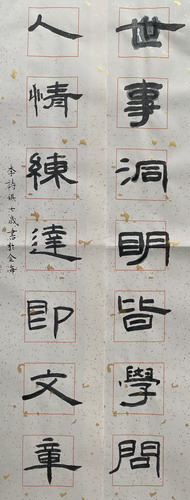 世事洞明皆學問
人情練達即文章
李詩祺七歲書於金海